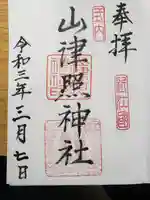 奉拝
山津照神社
令和三年三月七日